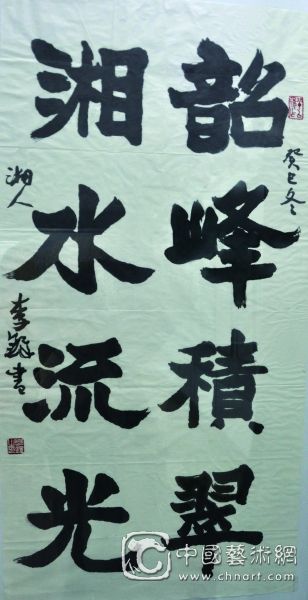 癸巳冬
韶峰積翠
湘水流光
湘人
李鐸書
中國藝術網
www.chnart.com